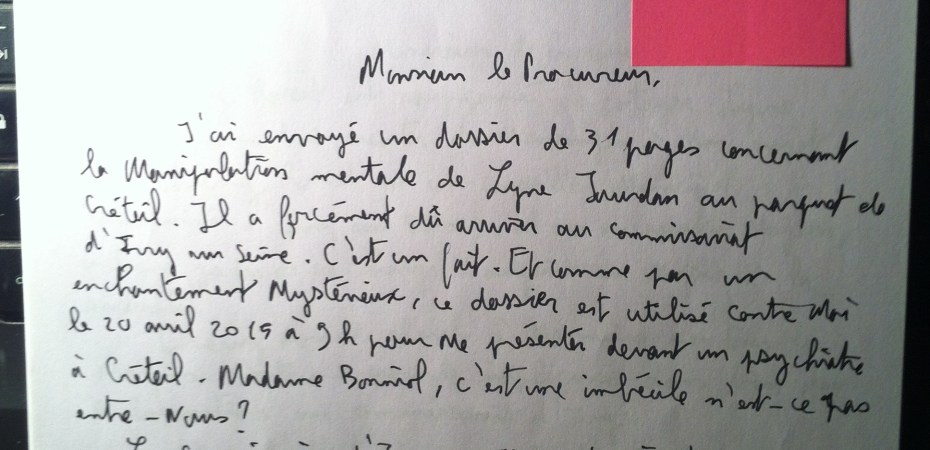 Monsieur le Procureur,
J'ai envoyé un dossier de 31 pages concernant
la Manipulation mentale de Lyne Jourdan au parquet de
Créteil. Il a forcément dû arriver au commissariat
d'Ivry sur Seine. C'est un fait. Et comme par un
enchantement Mystérieux, ce dossier est utilisé contre Moi
le 20 avril 2015 à 9h pour me présenter devant un psychiatre
à Créteil. Madame Bonniol, c'est une imbécile n'est-ce pas
entre-Nous?